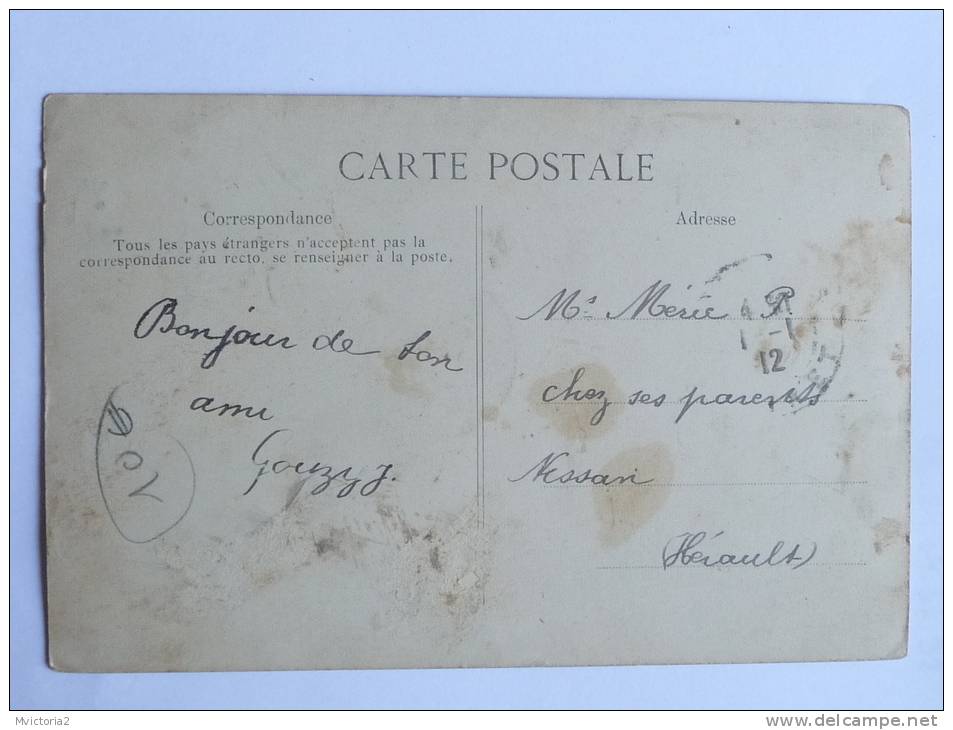 CARTE POSTALE
Correspondance
Tous les pays étrangers n'acceptent pas la
correspondance au recto, se renseigner à la poste.
Bonjour de ton
ami
Gouzy J.
Adresse
Mr Mérie P.
chez ses parents
Nissan
(Hérault)
12
Mvictoria2
www.delcampe.net